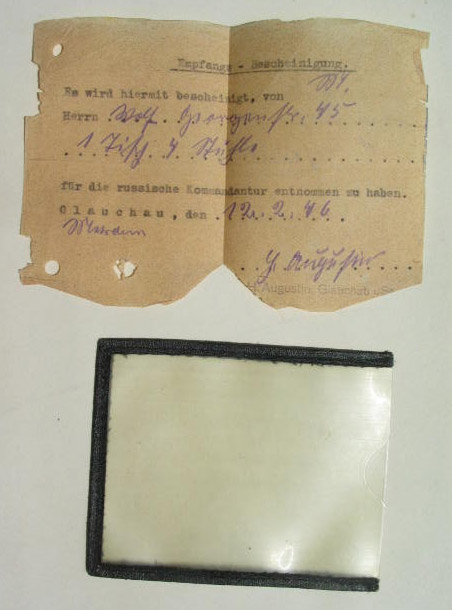 Empfangs - Bescheinigung.
Es wird hiermit bescheinigt, von
Herrn Wolf. Georgenstr. 45
1 Tisch. 4 Stühle
für die russische Kommandantur entnommen zu haben.
Glauchau, den 12.2.46.
H. Augustin
H. Augustin, Glauchau